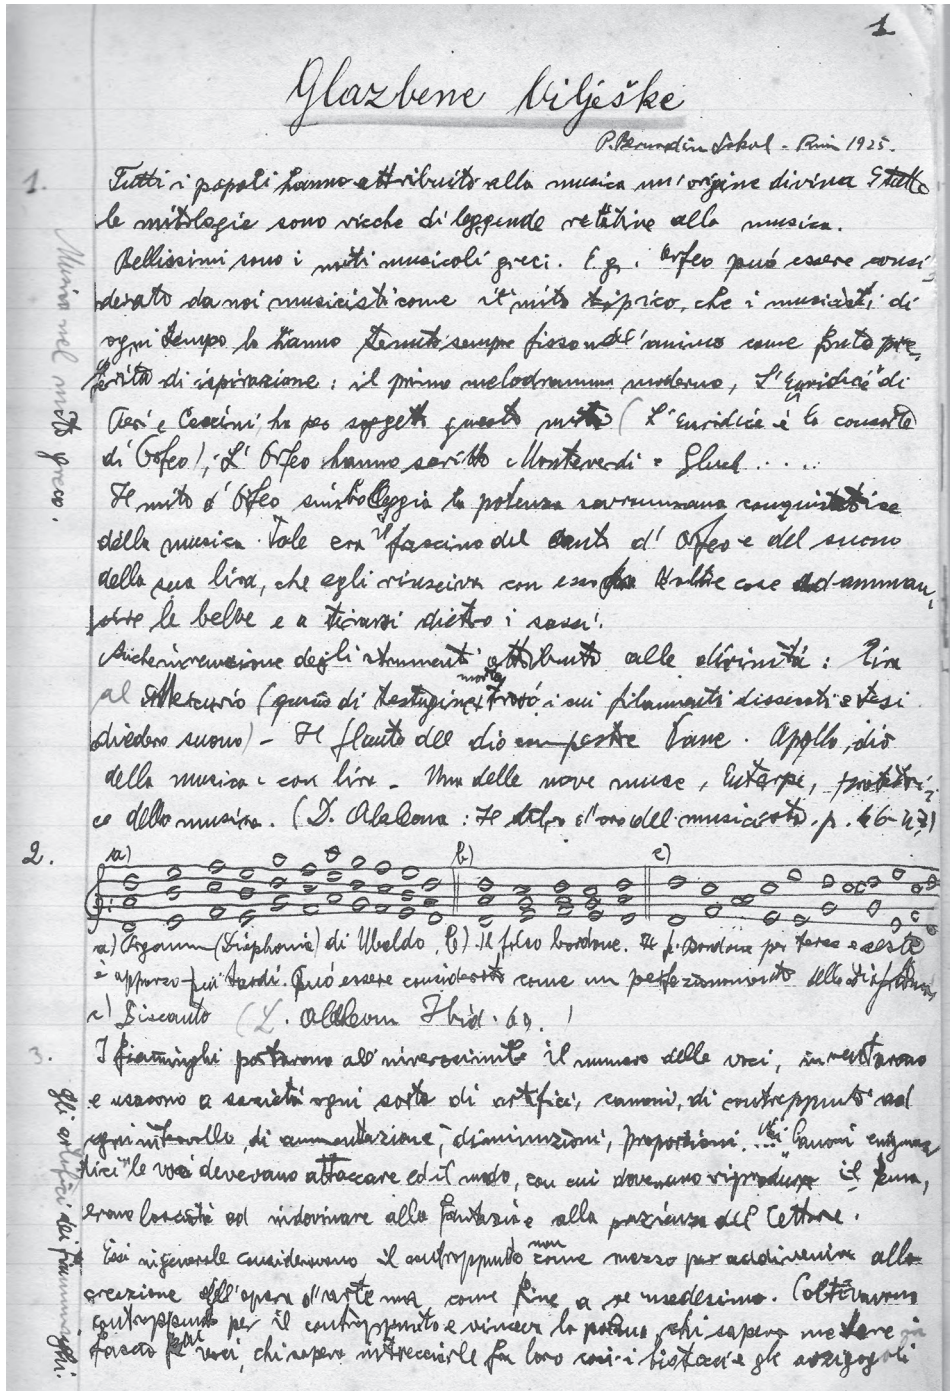 1
Glazbene bilješke
P. Bernardin Sokol - Rim 1925.
1. Tutti i popoli hanno attribuito alla musica un'origine divina e tutte
le mitologie sono ricche di leggende relative alla musica.
Bellissimi sono i miti musicali greci. E.g. Orfeo può essere consi
derato da noi musicisti come il mito tipico, che i musicisti di
ogni tempo lo hanno tenuto sempre fisso nell'animo come fonte pre-
ferita di ispirazione: il primo melodramma moderno, L'"Euridice" di
Peri e Caccini, ha per soggetto questo mito (L'Euridice è la consorte
di Orfeo); L'Orfeo hanno scritto Monteverdi e Gluck .....
Il mito d'Orfeo simboleggia la potenza sovrumana conquistatrice
della musica. Tale era il fascino del canto d'Orfeo e del suono
della sua lira, che egli riusciva con esso fra l'altre cose ad amman-
sire le belve e a tirarsi dietro i sassi.
Musica nel mito greco.
Anche invenzione degli strumenti attribuito alle divinità: Lira
al Mercurio (guscio di testugine morta trovó i cui filamenti dissecati e tesi
diedero suono) - Il flauto del dio Pane. Apollo, dio
della musica con lira. Una delle nove muse, Euterpe, protettri-
ce della musica. (D. Alaleona: Il libro d'oro del musicista. p. 46-47)
2. a) b) c)
a) Organum (Diaphonia) di Ubaldo, b) il falso bordone. Il f. Bordone per terze e seste
è apparso più tardi. Può essere considerato come un perfezionamento della diafonia,
c) Discanto (D. Alaleona Ibid. 60.)
3. I fiamminghi portarono all'inverosimile il numero delle voci, inventarono
e usarono a sazietà ogni sorta di artifici, canoni, di contrappunto ad
ogni intervallo, di aumentazione, diminuzioni, proporzioni... Nei "Canoni enigma
tici" le voci devevano attaccare ed il modo, con cui dovevano riprodurre il tema,
erano lasciate ad indovinare alla fantasia e alla pazienza del lettore.
Essi in generale consideravano il contrappunto non come mezzo per addivenire alla
creazione dell'opera d'arte ma come fine a se medesimo. Coltivavano
contrappunto per il contrappunto e vinceva la palma chi sapeva mettere in
fascio più voci, chi sapeva intrecciarle fra loro con i bisticci e gli arzigogoli
gli artifici dei fiamminghi.